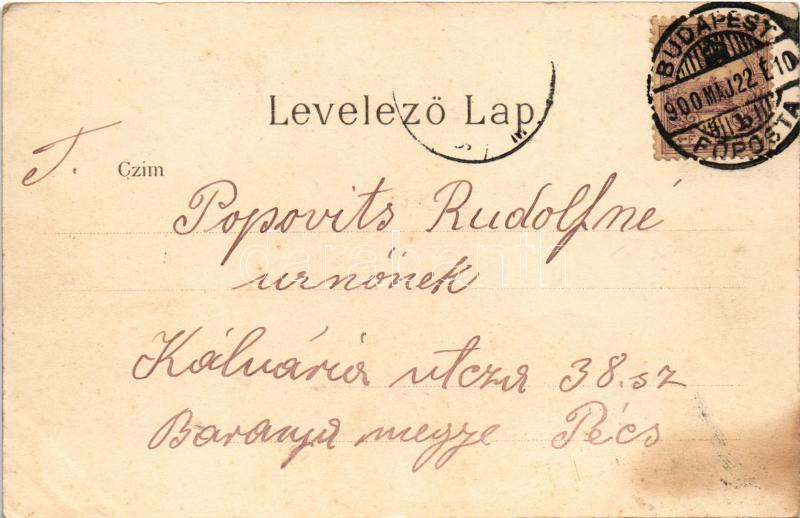 BUDAPEST
900 MÁJ 22 É10
FŐPOSTA
Levelező Lap.
T. Czim
Popovits Rudolfné
urnőnek
Kálvária utcza 38.sz
Baranya megye Pécs
darabanth